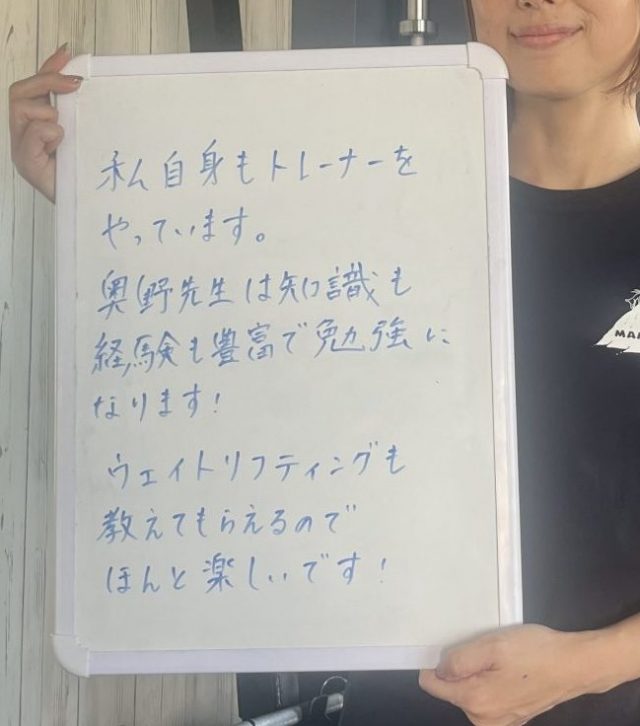 私自身もトレーナーを
やっています。
奥野先生は知識も
経験も豊富で勉強に
なります!
ウェイトリフティングも
教えてもらえるので
ほんと楽しいです!